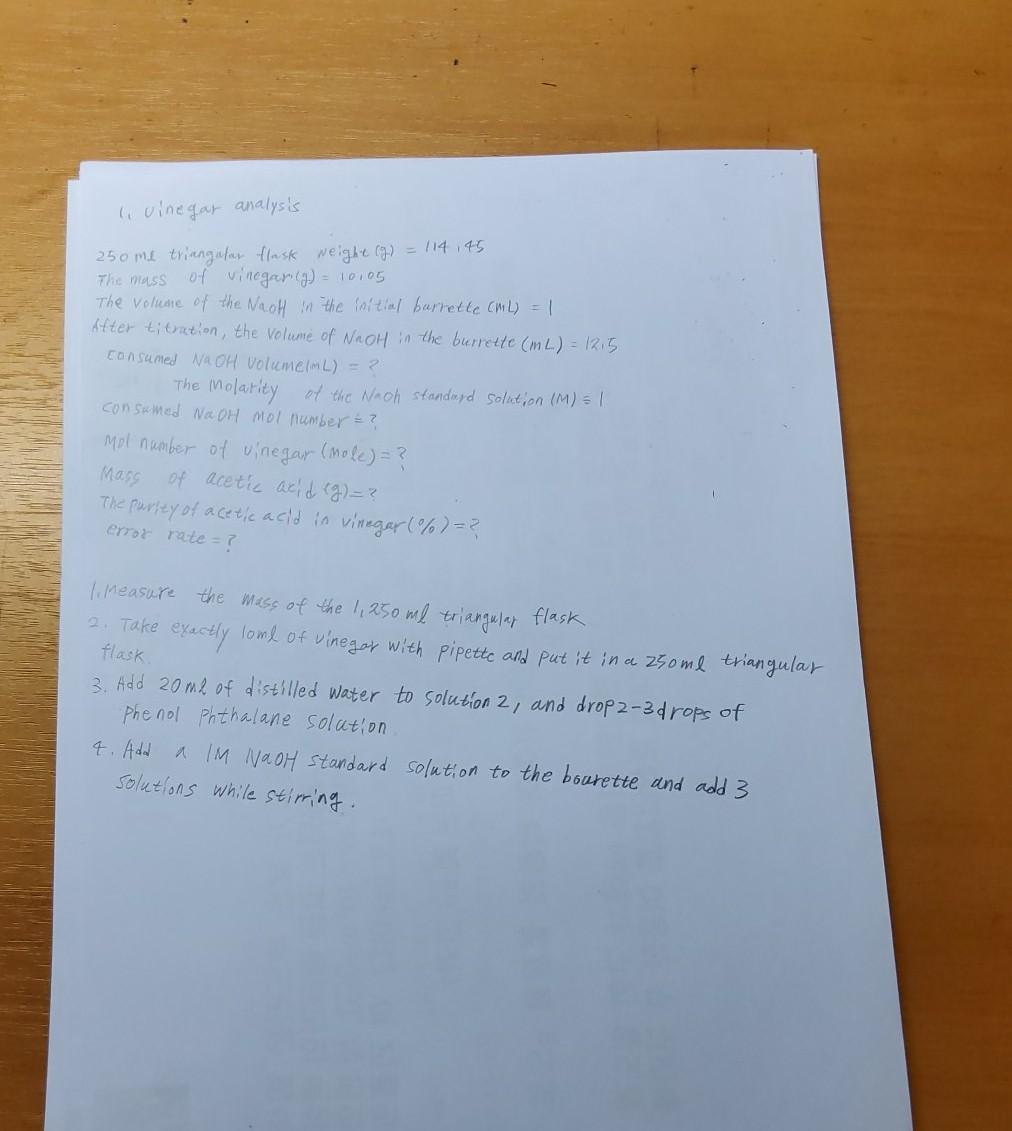 1. vinegar analysis
250 ml triangular flask weight (g) = 114.45
The mass of vinegar(g) = 10.05
The volume of the NaOH in the initial burrette (mL) = 1
After titration, the Volume of NaOH in the burrette (mL) = 12.5
consumed NaOH Volume(mL) = ?
The Molarity of the Naoh standard solution (M) = 1
consumed NaOH mol number = ?
Mol number of vinegar (mole) = ?
Mass of acetic acid (g) = ?
The purity of acetic acid in vinegar (%) = ?
error rate = ?
1. Measure the mass of the 1, 250 ml triangular flask
2. Take exactly 10ml of vinegar with pipette and put it in a 250ml triangular
flask.
3. Add 20ml of distilled water to solution 2, and drop 2-3 drops of
phenol phthalane solution
4. Add a 1M NaOH standard solution to the bourette and add 3
solutions while stirring.